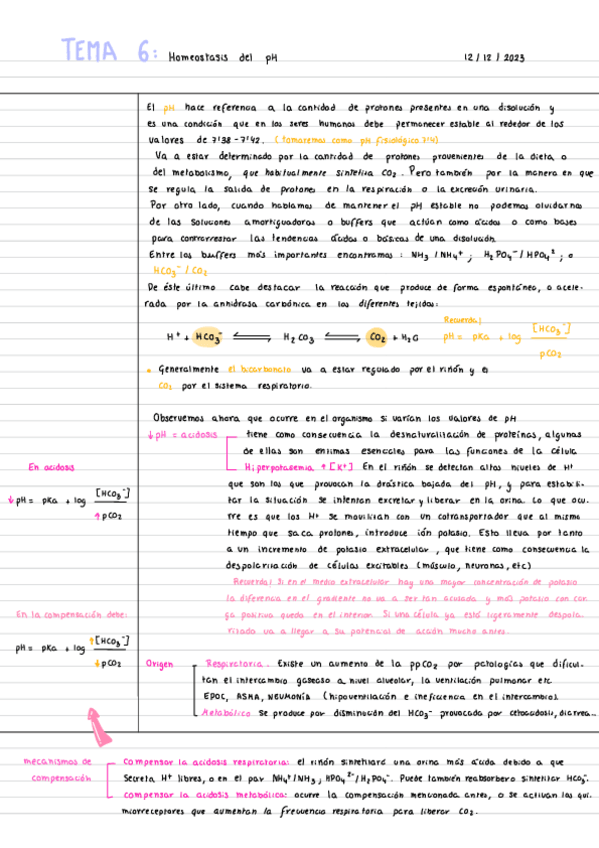 TEMA 6: Homeostasis del pH 12/12/2023
El pH hace referencia a la cantidad de protones presentes en una disolución y
es una condición que en los seres humanos debe permanecer estable al rededor de los
valores de 7'38-7'42. (tomaremos como pH fisiológico 7'4)
Va a estar determinado por la cantidad de protones provenientes de la dieta o
del metabolismo, que habitualmente sintetiza CO2. Pero también por la manera en que
se regula la salida de protones en la respiración o la excreción urinaria.
Por otro lado, cuando hablamos de mantener el pH estable no podemos olvidarnos
de las soluciones amortiguadoras o buffers que actúan como ácidos o como bases
para contrarrestar las tendencias ácidas o básicas de una disolución.
Entre los buffers más importantes encontramos: NH3/NH4+; H2PO4-/HPO4 2-; o
HCO3-/CO2
De éste último cabe destacar la reacción que produce de forma espontánea, o acele-
rada por la anhidrasa carbónica en los diferentes tejidos:
Recuerda!
H+ + HCO3- ⇌ H2CO3 ⇌ CO2 + H2O pH = pKa + log [HCO3-]
pCO2
Generalmente el bicarbonato va a estar regulado por el riñón y el
CO2 por el sistema respiratorio.
Observemos ahora que ocurre en el organismo si varían los valores de pH
↓pH = acidosis tiene como consecuencia la desnaturalización de proteínas, algunas
de ellas son enzimas esenciales para las funciones de la célula
Hiperpotasemia ↑[K+] En el riñón se detectan altos niveles de H+
que son los que provocan la drástica bajada del pH, y para estabili-
zar la situación se intentan excretar y liberar en la orina. Lo que ocu-
rre es que los H+ se movilizan con un cotransportador que al mismo
tiempo que saca protones, introduce ión potasio. Esto lleva por tanto
a un incremento de potasio extracelular, que tiene como consecuencia la
despolarización de células excitables (músculo, neuronas, etc)
Recuerda! Si en el medio extracelular hay una mayor concentración de potasio
la diferencia en el gradiente no va a ser tan acusada y más potasio con car
ga positiva queda en el interior. Si una célula ya está ligeramente despola.
rizada va a llegar a su potencial de acción mucho antes.
En acidosis
↓pH = pKa + log [HCO3-]
↑pCO2
En la compensación debe:
pH = pKa + log ↑[HCO3-]
↓pCO2
Origen Respiratoria. Existe un aumento de la ppCO2 por patologías que dificul-
tan el intercambio gaseoso a nivel alveolar, la ventilación pulmonar etc
EPOC, ASMA, NEUMONÍA (hipoventilación e ineficencia en el intercambio).
Metabólico. Se produce por disminución del HCO3- provocada por cetoacidosis, diarrea...
mecanismos de compensación
Compensar la acidosis respiratoria: el riñón sintetizará una orina más ácida debido a que
secreta H+ libres, o en el par NH4+/NH3; HPO4 2-/H2PO4-. Puede también reabsorber o sintetizar HCO3-.
compensar la acidosis metabólica: ocurre la compensación mencionada antes, o se activan los qui-
miorreceptores que aumentan la frecuencia respiratoria para liberar CO2.